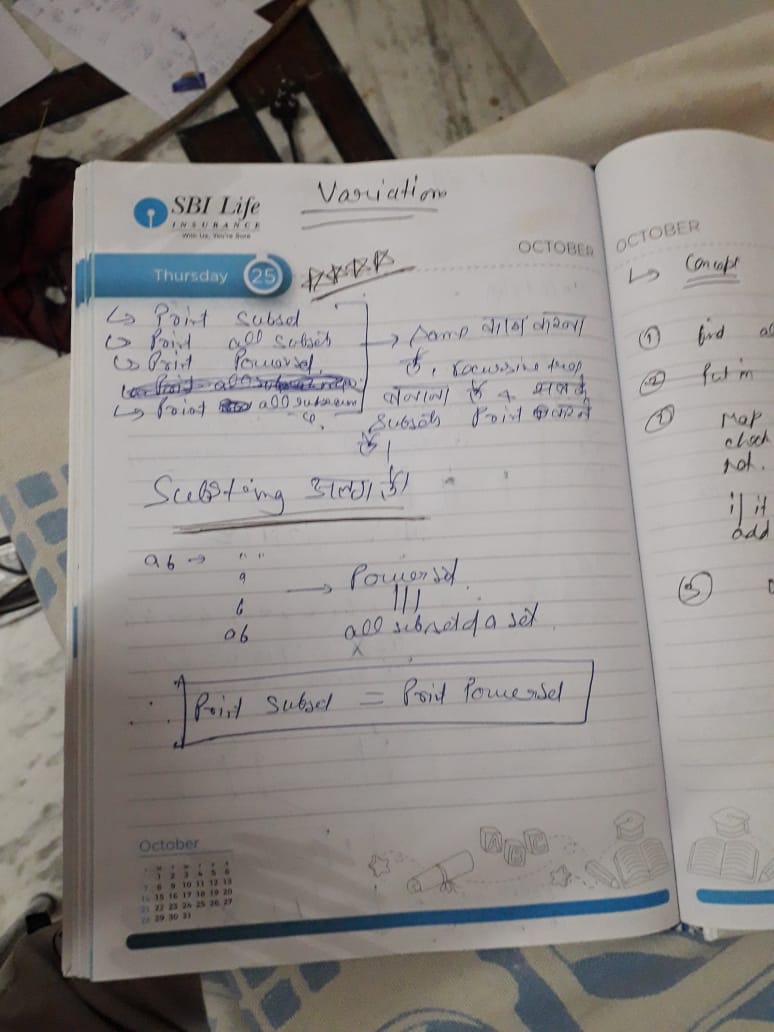 SBI Life
INSURANCE
With Us, You're Sure
Variation
OCTOBER
Thursday 25
↳ Print Subset
↳ Print all subsets
↳ Print Powerset.
↳ Print all subsequence
→ Same बात करता
है, recursive tree
बनाना है &
Subsets Print करने
है।
Substring अलग है।
ab → " "
a
b
ab
→ Powerset
|||
all subset of a set
∴ Print Subset = Print Powerset
October
1 2 3 4 5 6
7 8 9 10 11 12 13
14 15 16 17 18 19 20
21 22 23 24 25 26 27
28 29 30 31
A B C
OCTOBER
↳ Concept
① find al
② Put in
Map
check
not.
if it
add
⑤